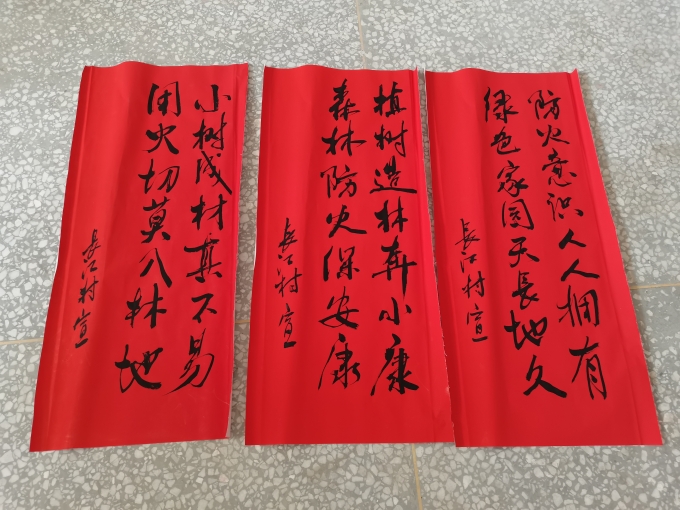 防火意识人人拥有
绿色家园天長地久
長江村宣
植树造林奔小康
森林防火保安康
長江村宣
小树成材真不易
用火切莫入林地
長江村宣